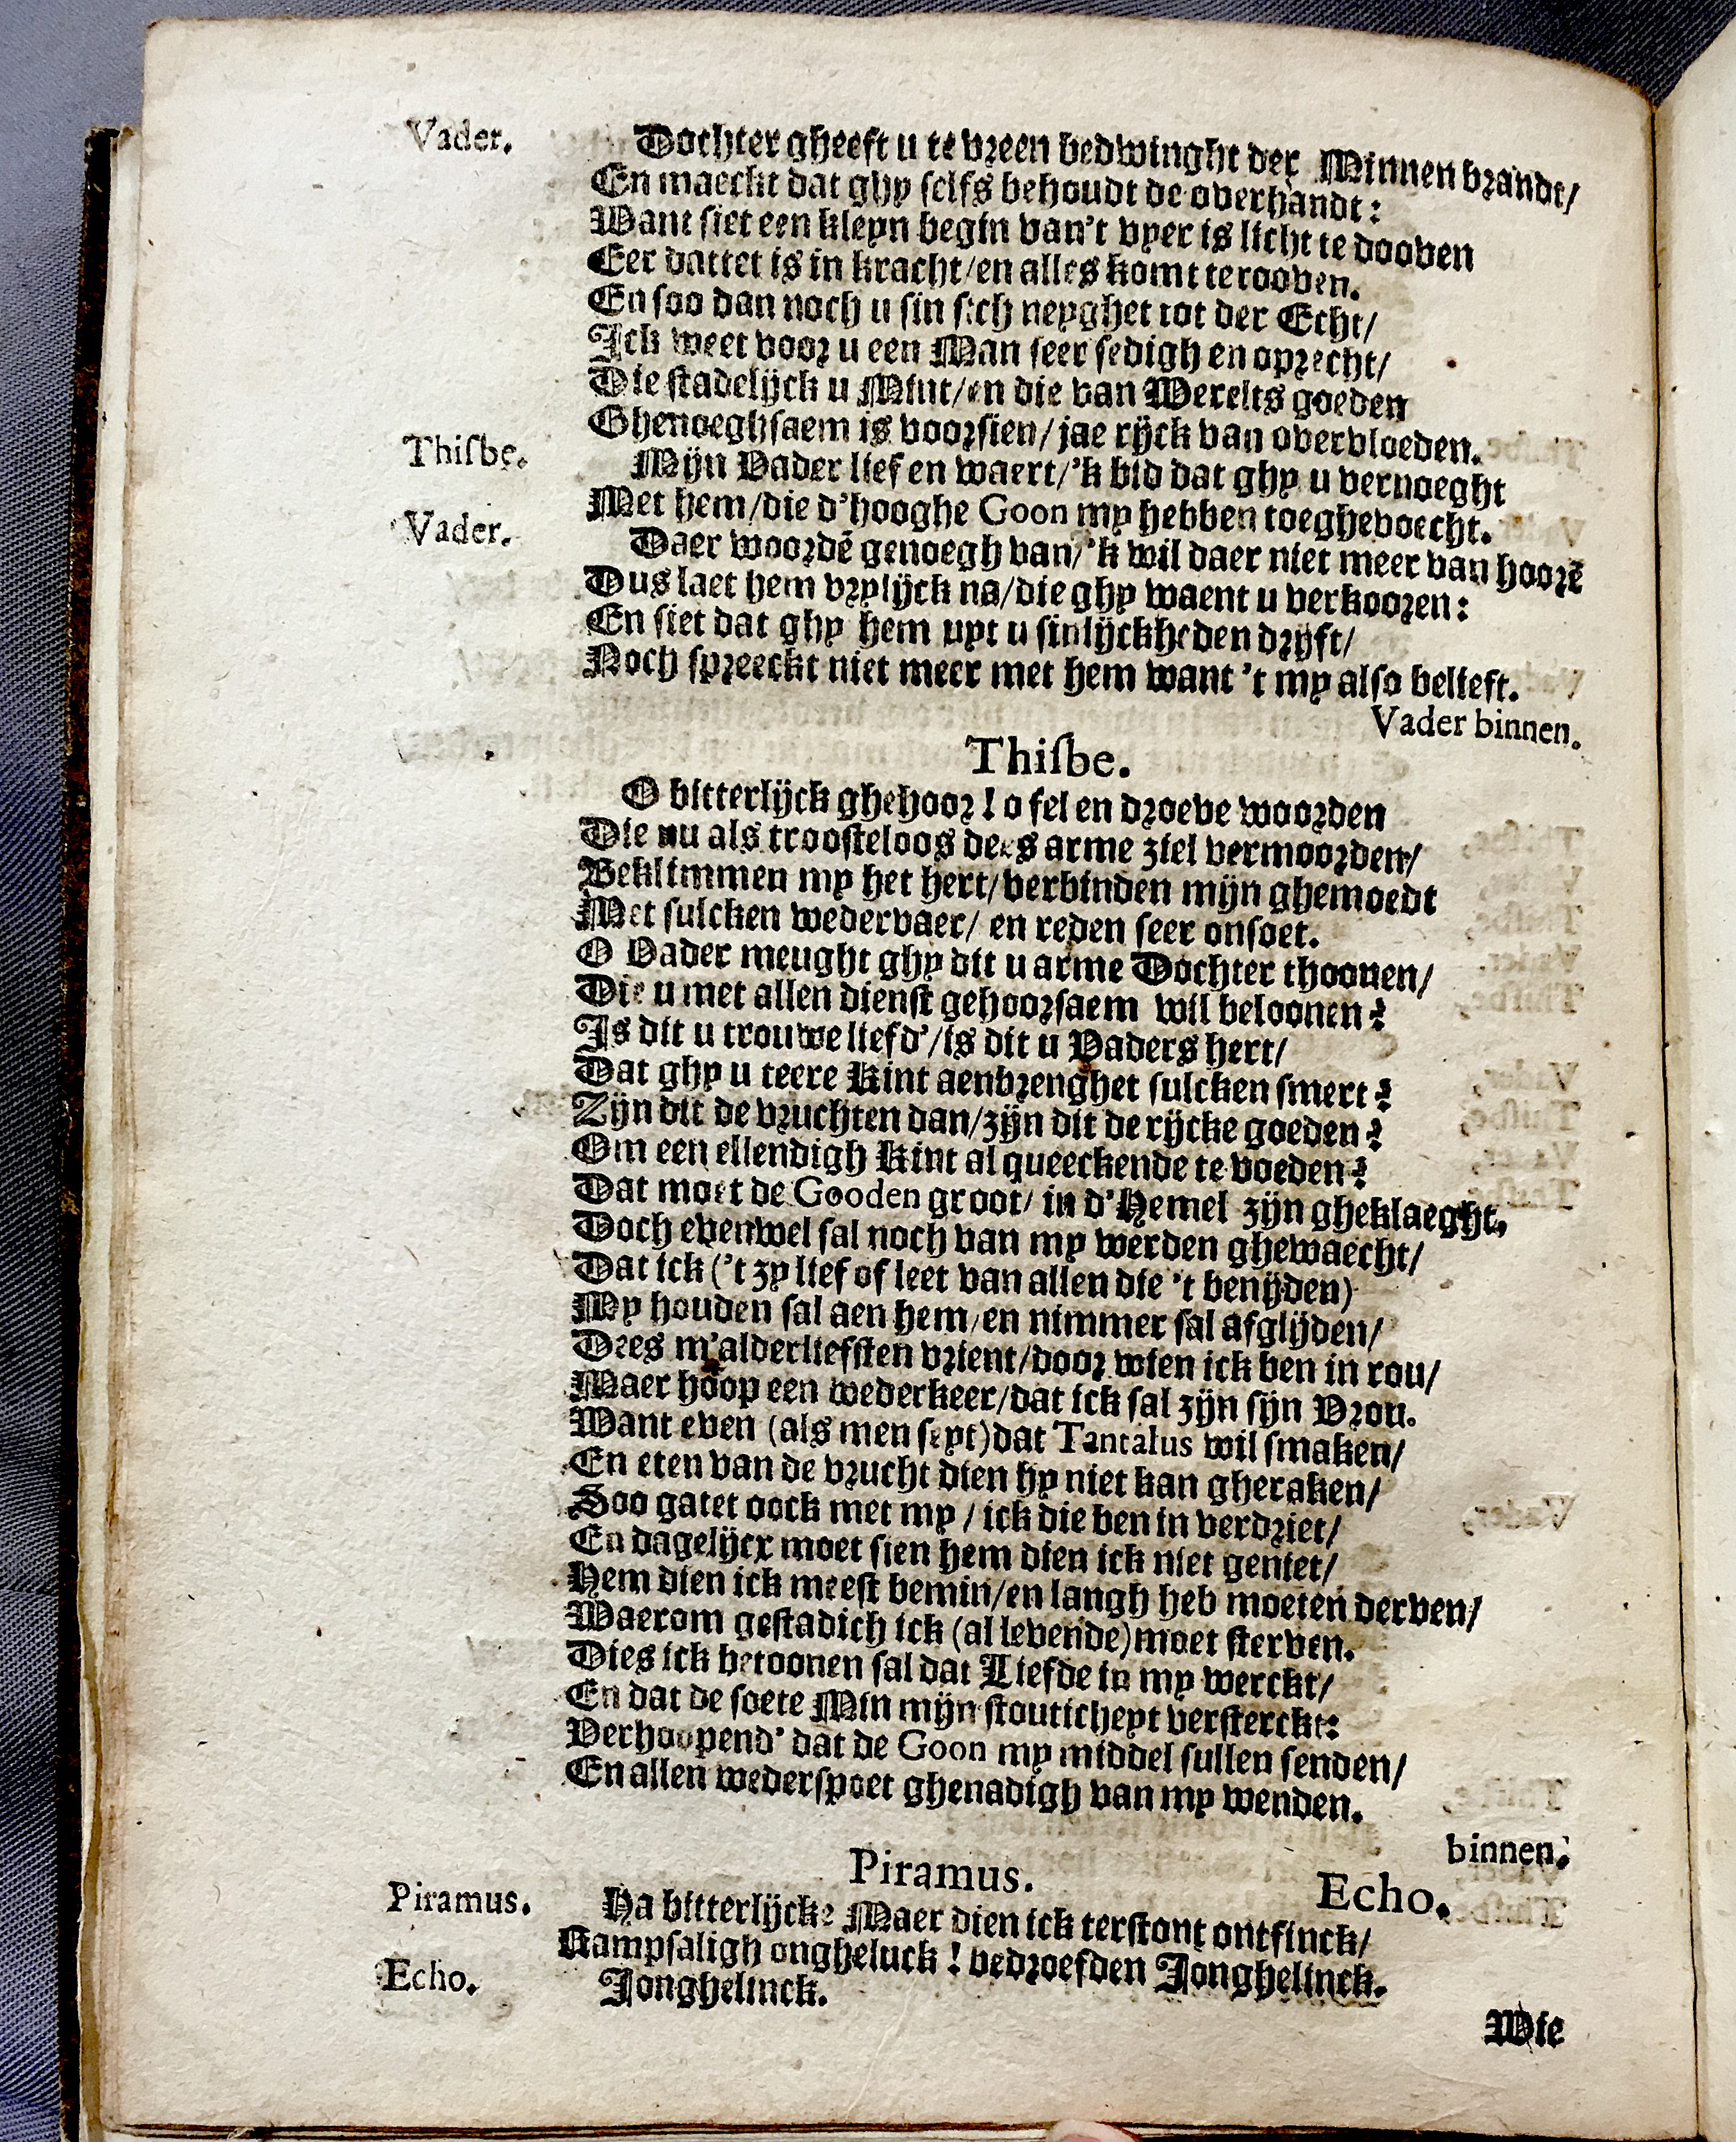 Vader. Dochter gheeft u te vreen bedwinght der Minnen brandt/
En maeckt dat ghy selfs behoudt de overhandt:
Want siet een kleyn begin van't vyer is licht te dooven
Eer dattet is in kracht/en alles komt te rooven.
En soo dan noch u sin sich neyghet tot der Echt/
Ick weet voor u een Man seer sedigh en oprecht/
Die stadelijck u Mint/en die van Werelts goeden
Ghenoeghsaem is voorsien/ jae rijck van overvloeden.
Thisbe. Mijn Vader lief en waert/'k bid dat ghy u vernoeght
Met hem/die d'hooghe Goon my hebben toeghevoecht.
Vader. Daer woordē genoegh van/'k wil daer niet meer van hoorē
Dus laet hem vrylijck na/die ghy waent u verkooren:
En siet dat ghy hem uyt u sinlijckheden drijft/
Noch spreeckt niet meer met hem want 't my also belieft.
Vader binnen.
Thisbe.
O bitterlijck ghehoor! o fel en droeve woorden
Die nu als troosteloos dees arme ziel vermoorden/
Beklimmen my het hert/verbinden mijn ghemoedt
Met sulcken wedervaer/ en reden seer onsoet.
O Vader meught ghy dit u arme Dochter thoonen/
Die u met allen dienst gehoorsaem wil beloonen?
Is dit u trouwe liefd'/is dit u Vaders hert/
Dat ghy u teere Kint aenbrenghet sulcken smert?
Zijn dit de vruchten dan/zijn dit de rijcke goeden?
Om een ellendigh Kint al queeckende te voeden?
Dat moet de Gooden groot/ in d'Hemel zijn gheklaeght,
Doch evenwel sal noch van my werden ghewaecht/
Dat ick ('t zy lief of leet van allen die 't benijden)
My houden sal aen hem/en nimmer sal afglijden/
Dees m'alderliefsten vrient/door wien ick ben in rou/
Maer hoop een wederkeer/dat ick sal zijn sijn Vrou.
Want even (als men seyt)dat Tantalus wil smaken/
En eten van de vrucht dien hy niet kan gheraken/
Soo gatet oock met my / ick die ben in verdriet/
En dagelijcx moet sien hem dien ick niet geniet/
Hem dien ick meest bemin/en langh heb moeten derven/
Waerom gestadich ick (al levende)moet sterven.
Dies ick betoonen sal dat Liefde in my werckt/
En dat de soete Min mijn stouticheyt versterckt:
Verhoopend' dat de Goon my middel sullen senden/
En allen wederspoet ghenadigh van my wenden.
binnen.
Piramus. Echo.
Piramus. Ha bitterlijcke Maer dien ick terstont ontfinck/
Rampsaligh ongheluck! bedroefden Jonghelinck.
Echo. Jonghelinck.
Wie